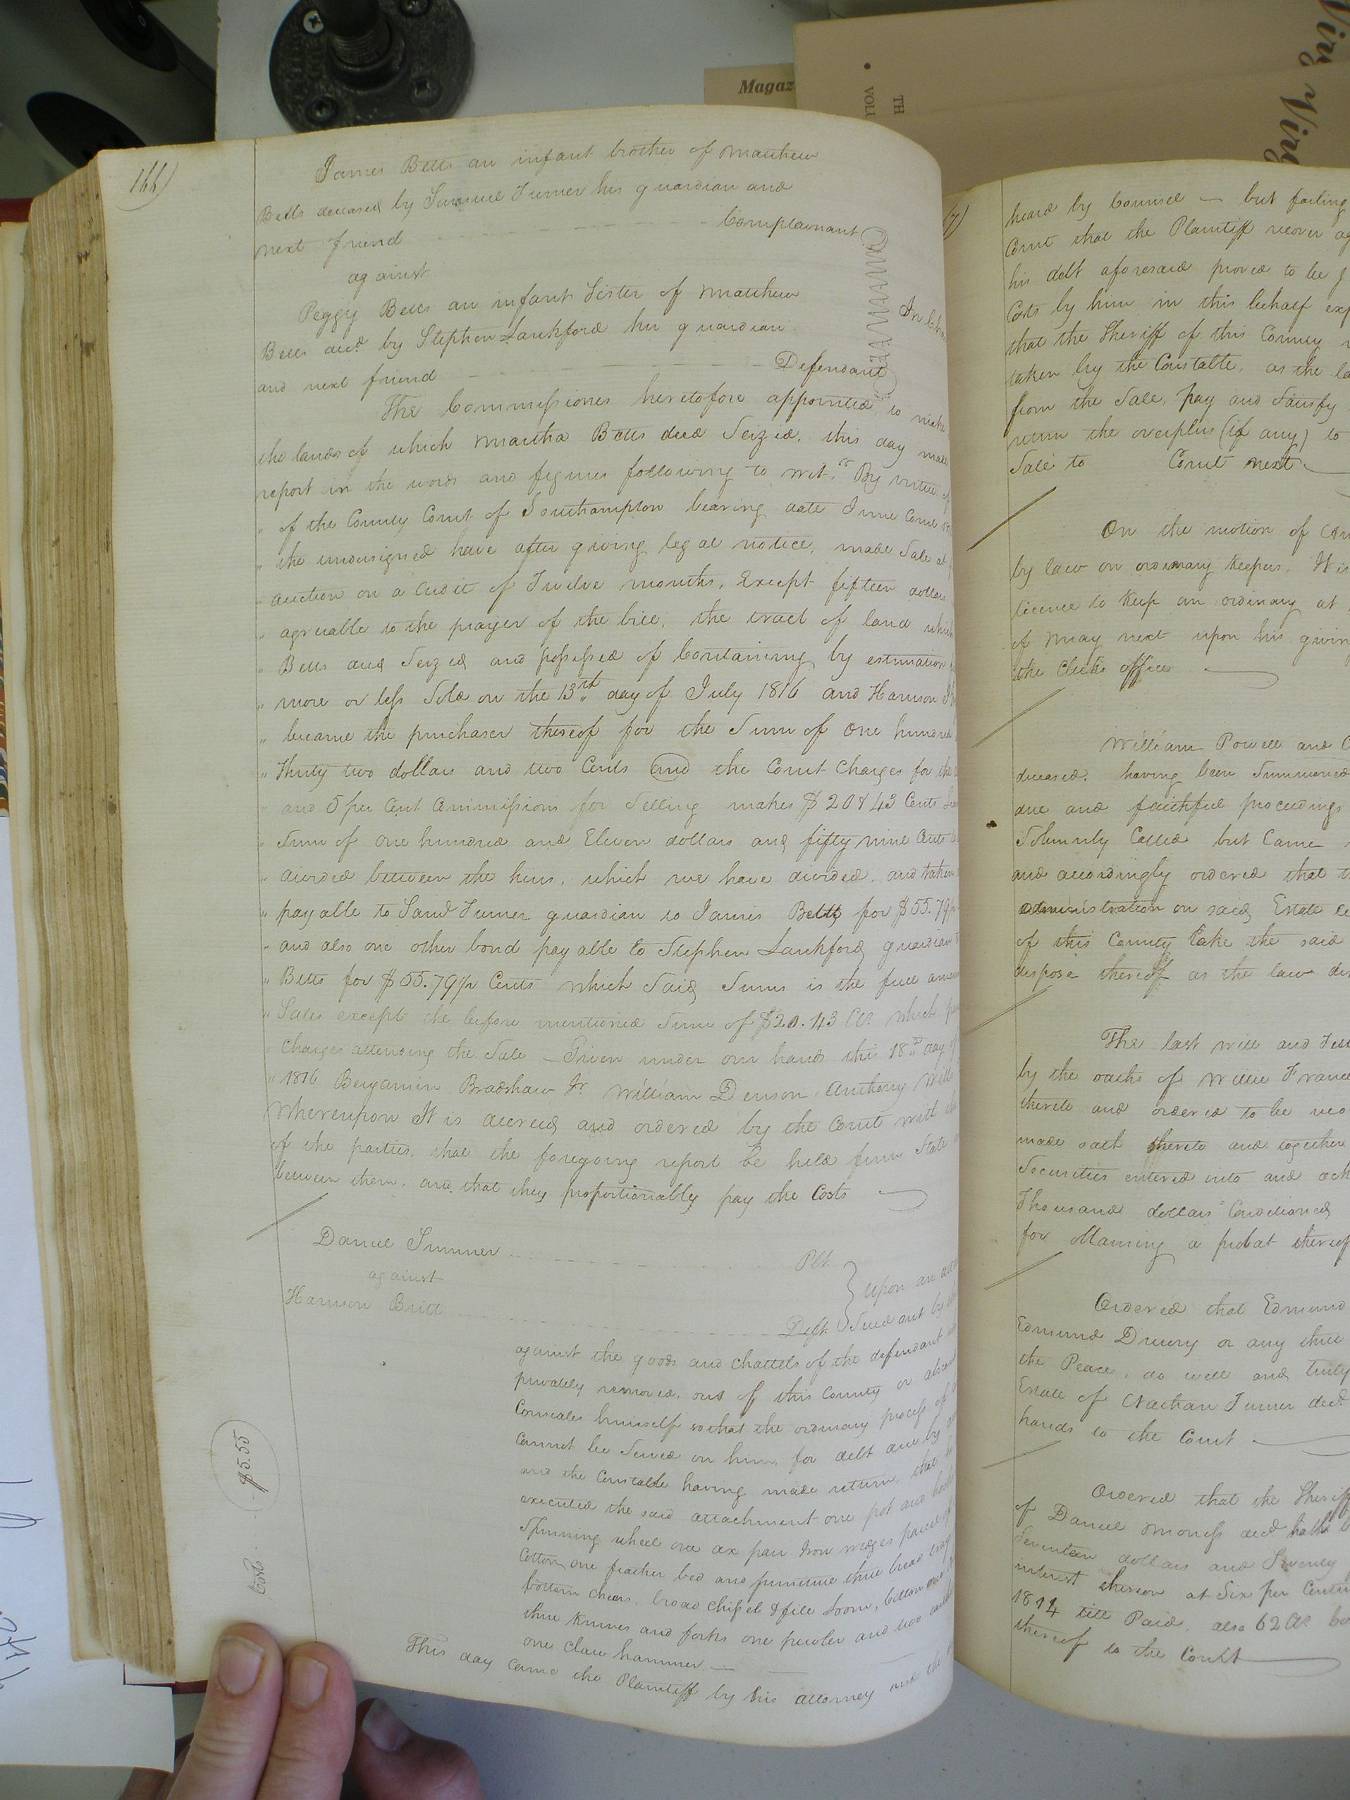 Magaz
TH
VOLU
Virg
Virg
166)
James Betts an infant brother of Matthew
Betts deceased by Samuel Turner his guardian and
next friend Complainant
against
Peggy Betts an infant Sister of Matthew
Betts decd. by Stephen Lankford her guardian
and next friend Defendant
The Commissioners heretofore appointed to make
the lands of which Martha Betts died Seized, this day made
report in the words and figures following to wit. "By virtue of
" of the County Court of Southampton bearing date June Court
" the undersigned have after giving legal notice, made Sale at
" auction on a credit of Twelve months, Except fifteen dollars
" agreeable to the prayer of the bill, the tract of land which
" Betts died Seized and possessed of Containing by estimation
" more or less Sold on the 13th day of July 1816 and Harmon
" became the purchaser thereof for the Sum of One hundred
" Thirty two dollars and two Cents and the Court Charges for the
" and 5 per Cent Commissions for Selling makes $20 & 43 Cents
" Sum of one hundred and Eleven dollars and fifty nine Cents
" divided between the heirs, which we have divided, and taken
" payable to Saml Turner guardian to James Betts for $55.79½
" and also one other bond payable to Stephen Lankford guardian
" Betts for $55.79½ Cents which Said Sums is the full amount
" Sales except the before mentioned Sum of $20.43 Cts which
" Charges attending the Sale – Given under our hands this 18th day of
" 1816 Benjamin Bradshaw Jr. William Denson, Anthony
Whereupon It is decreed and ordered by the Court with
of the parties, that the foregoing report be held firm Stable
between them, and that they proportionably pay the Costs
Daniel Simmer Plt
against
Harmon Britt Deft
} upon an
Sued out by
against the goods and chattels of the defendant
privately removed, out of this County or
Conceales himself so that the ordinary process of
Cannot be Served on him, for debt due by
and the Constable having made return, that
executed the said attachment one pot and
Spinning wheel one ax pair Iron wedges parcel of
Cotton, one feather bed and furniture three
bottom Chears, broad Chissel & file
three Knives and forks one pewter and two
one claw hammer —
This day came the Plaintiff by his attorney and the
$5.55
Costs
7)
heard by Counsel — but failing
Court that the Plaintiff recover
his debt aforesaid proved to be
Costs by him in this behalf
that the Sheriff of this County
taken by the Constable, as the
from the Sale, pay and Satisfy
return the overplus (if any) to
Sale to Court next
On the motion of
by law on ordinary Keepers, It is
licence to Keep an ordinary at
of May next upon his giving
the Clerks office
William Powell and
deceased, having been Summoned
due and faithful proceedings
Solemnly Called but Came
and accordingly ordered that
administration on said Estate
of this County take the said
dispose thereof as the law
The last will and
by the oaths of Willie
thereto and ordered to be
made oath thereto and together
Securities entered into and
Thousand dollars Conditioned
for obtaining a probat thereof
Ordered that Edmund
Edmund Drury or any three
the Peace, do well and truly
Estate of Nathan Turner decd
hands to the Court
Ordered that the Sheriff
of Daniel Morress decd
Seventeen dollars and Twenty
interest thereon at Six per Centum
1814 till Paid, also 62 Cts
thereof to the Court